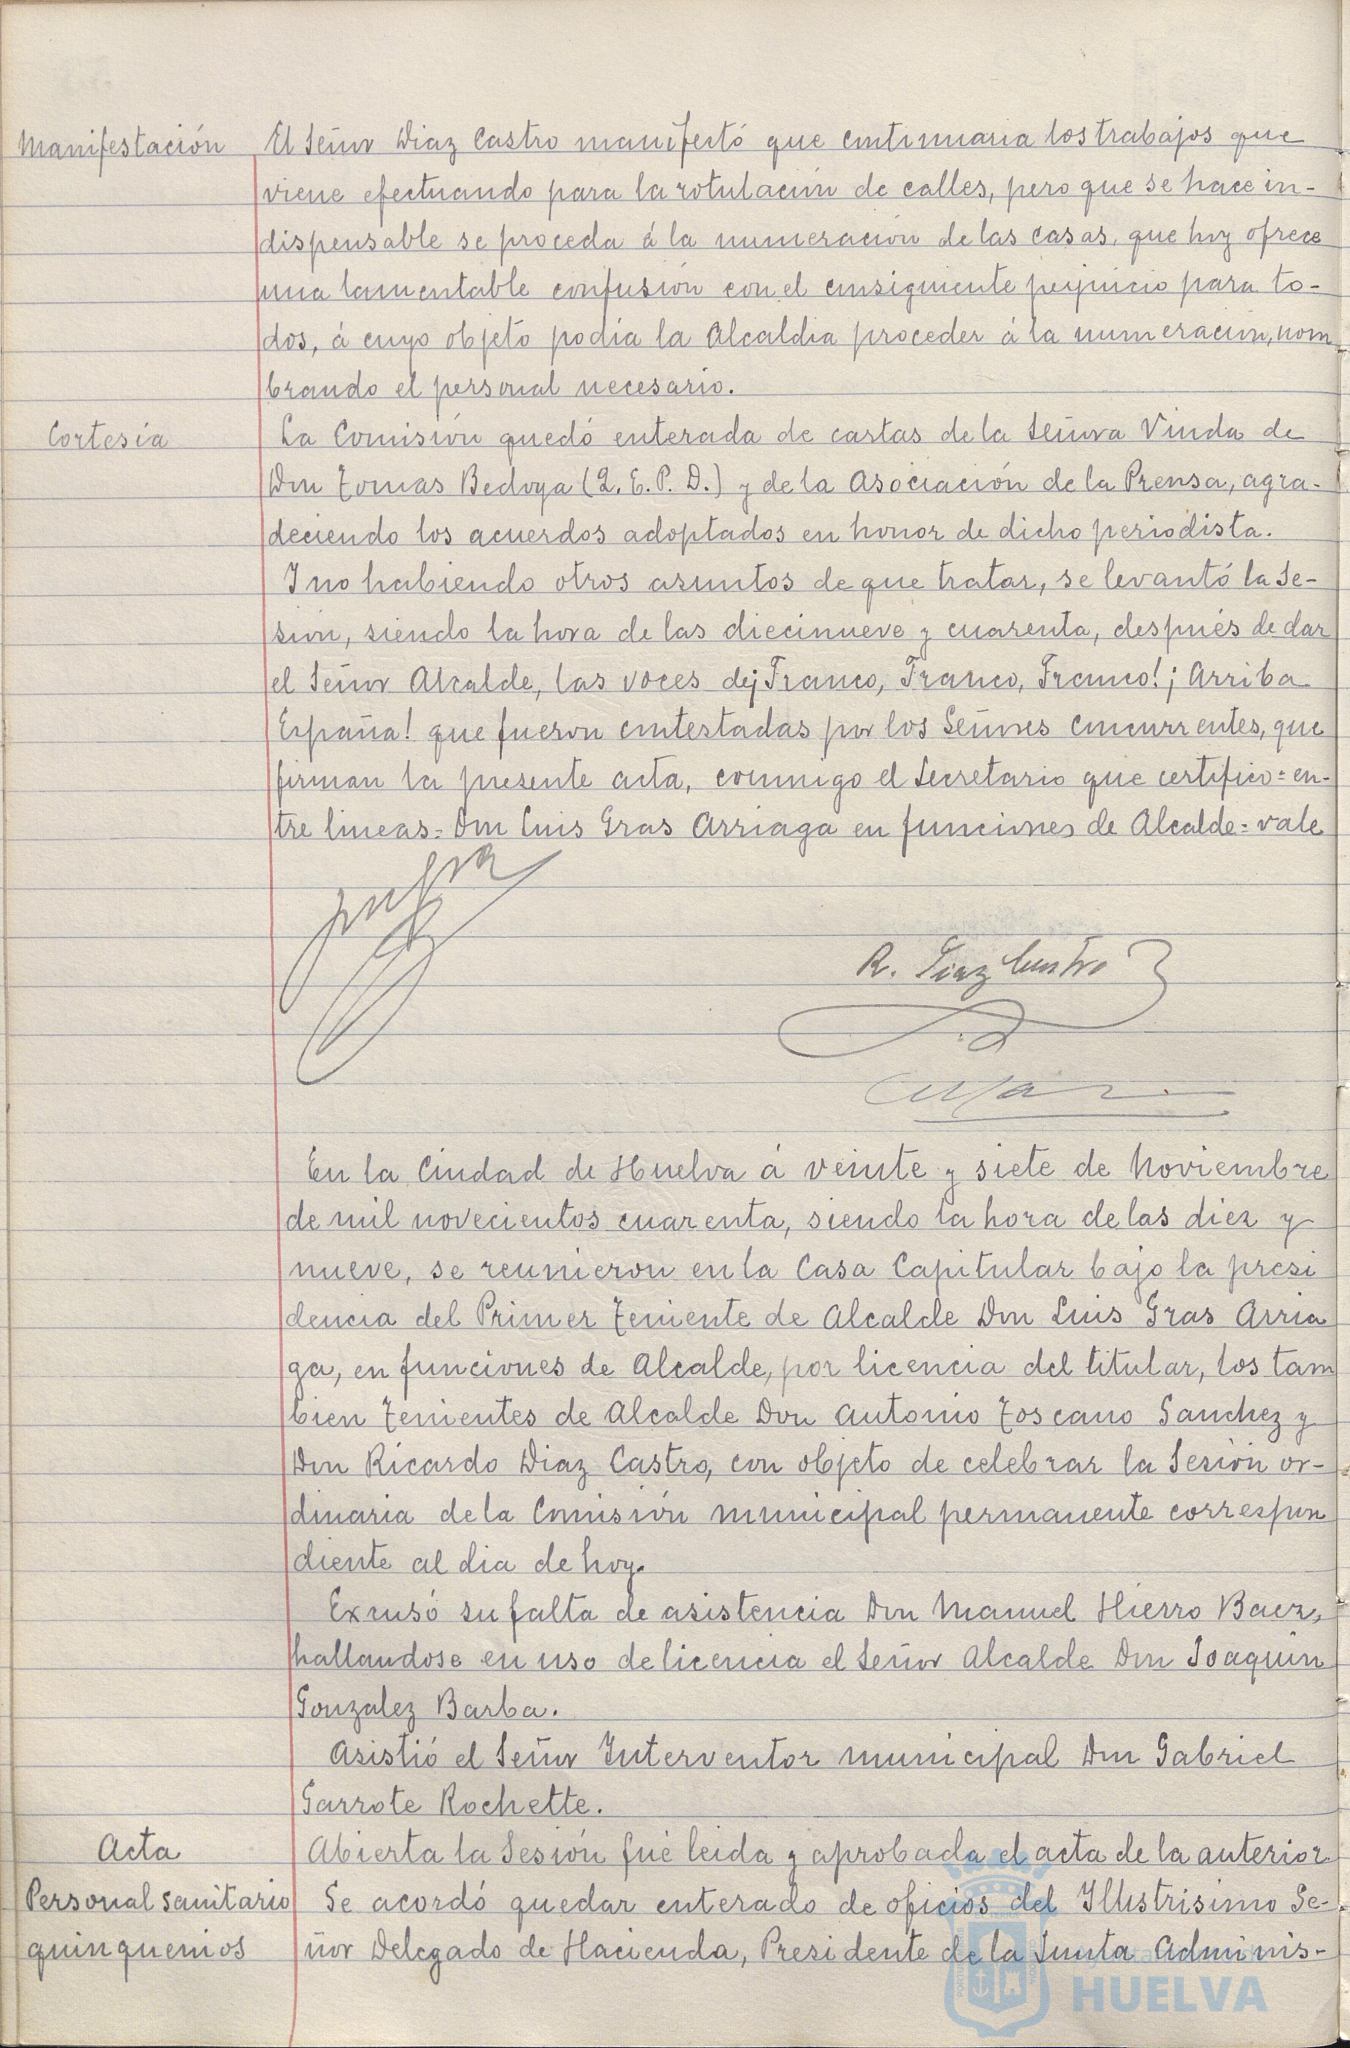 Manifestación
El Señor Diaz Castro manifestó que continuaria los trabajos que
viene efectuando para la rotulación de calles, pero que se hace in-
dispensable se proceda á la numeración de las casas, que hoy ofrece
una lamentable confusión con el consiguiente perjuicio para to-
dos, á cuyo objeto podia la Alcaldia proceder á la numeración, nom
brando el personal necesario.
Cortesia
La Comisión quedó enterada de cartas de la Señora Viuda de
Don Tomas Bedoya (Q. E. P. D.) y de la Asociación de la Prensa, agra-
deciendo los acuerdos adoptados en honor de dicho periodista.
Y no habiendo otros asuntos de que tratar, se levantó la Se-
sión, siendo la hora de las diecinueve y cuarenta, después de dar
el Señor Alcalde, las voces de ¡Franco, Franco, Franco! ¡Arriba
España! que fueron contestadas por los Señores concurrentes, que
firman la presente acta, conmigo el Secretario que certifico = en-
tre lineas = Don Luis Gras Arriaga en funciones de Alcalde = vale
R. Diaz Castro
En la Ciudad de Huelva á veinte y siete de Noviembre
de mil novecientos cuarenta, siendo la hora de las diez y
nueve, se reunieron en la Casa Capitular bajo la presi
dencia del Primer Teniente de Alcalde Don Luis Gras Arria
ga, en funciones de Alcalde, por licencia del titular, los tam
bien Tenientes de Alcalde Don Antonio Toscano Sanchez y
Don Ricardo Diaz Castro, con objeto de celebrar la Sesión or-
dinaria de la Comisión municipal permanente correspon
diente al dia de hoy.
Excusó su falta de asistencia Don Manuel Hierro Baez,
hallandose en uso de licencia el Señor Alcalde Don Joaquin
Gonzalez Barba.
Asistió el Señor Interventor municipal Don Gabriel
Garrote Rochette.
Acta
Abierta la Sesión fué leida y aprobada el acta de la anterior
Personal sanitario
quinquenios
Se acordó quedar enterado de oficios del Illustrisimo Se-
ñor Delegado de Hacienda, Presidente de la Junta Adminis-
HUELVA